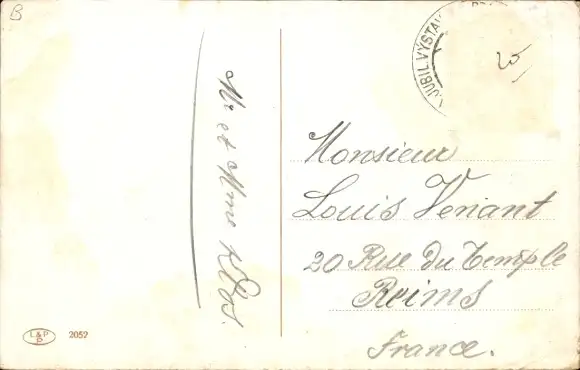 B
JUBIL.VÝSTA
25
Mr et Mme Klos.
Monsieur
Louis Venant
20 Rue du Temple
Reims
France.
L&P
P
2052